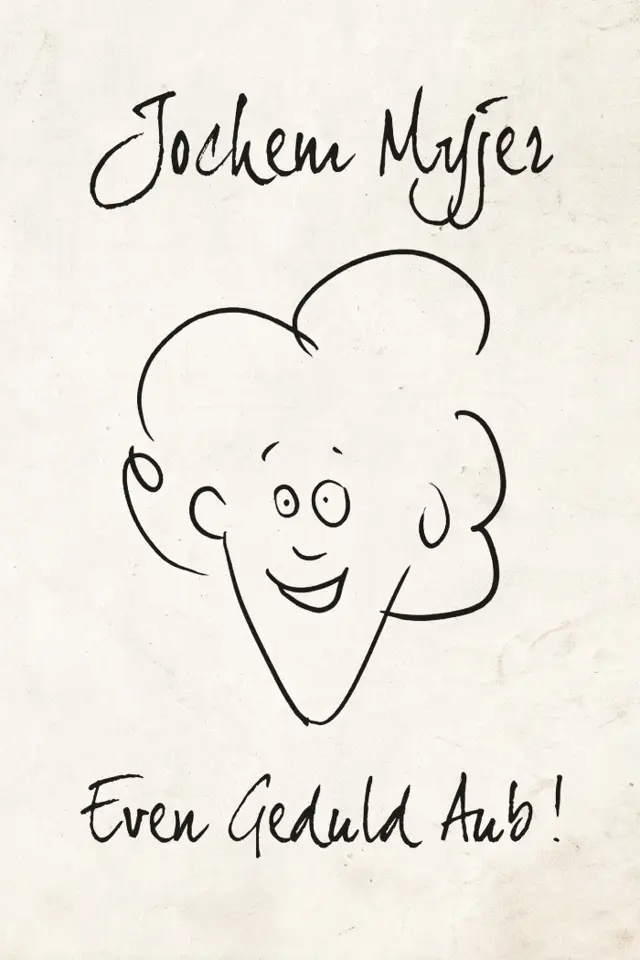 Jochem Myjer
Even Geduld Aub!